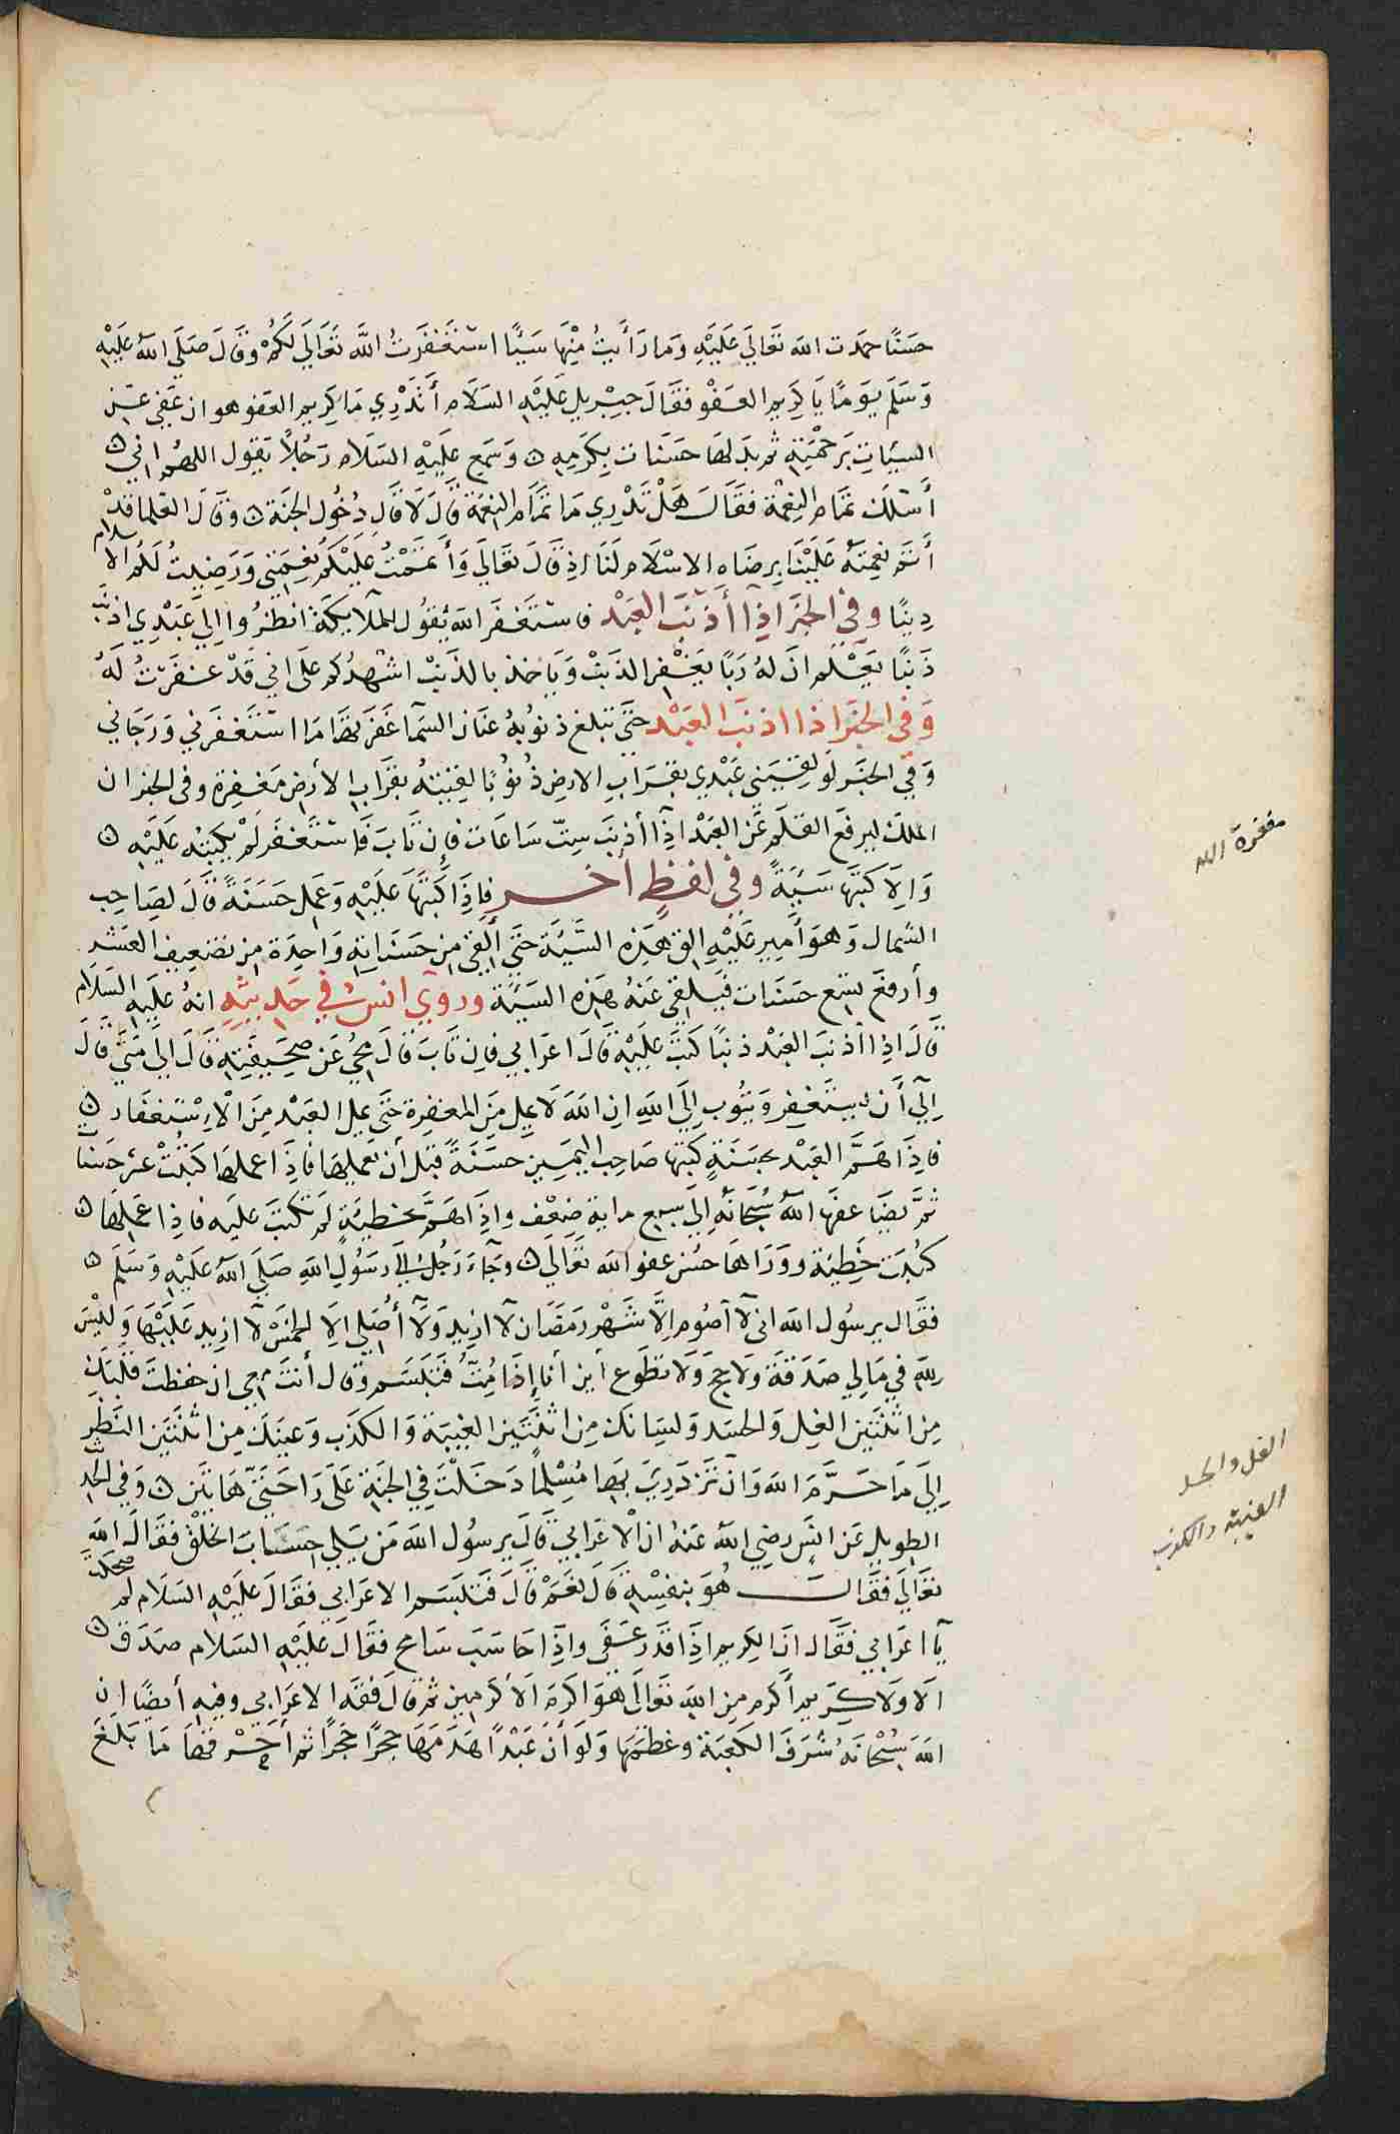 حسنًا حمدت الله تعالي عليه وما رأيتُ منها سيئًا استغفرتُ الله تعالي لكم وقال صلي الله عليه
وسلم يومًا يا كريم العفو فقال جبريل عليه السلام أتدري ما كريم العفو هو ان عفي عن
السيئات برحمته ثم بدلها حسنات بكرمه ن وسمع عليه السلام رجلاً يقول اللهم اني
أسئلك تمام النعمة فقال هل تدري ما تمام النعمة قال لا قال دخول الجنة ن وقال العلما قد
أتم نعمته علينا برضاه الاسلام لنا اذ قال تعالي وأتممتُ عليكم نعمتي ورضيتُ لكم الاسلام
دينًا وفي الخبر اذا أذنب العبد فاستغفر الله يقول للملايكة انظروا الي عبدي اذنب
ذنبًا يعلم ان له ربًا يغفر الذنب وياخذ بالذنب اشهدكم على اني قد غفرتُ له
وفي الخبر اذا اذنب العبد حتى تبلغ ذنوبهُ عنان السما غفرتها ما استغفرني ورجاني
وفي الخبر لو لقيني عبدي بقراب الارض ذنوبًا لقيتهُ بقراب الأرض مغفرة وفي الخبر ان
الملك ليرفع القلم عن العبد اذا أذنب ست ساعات فإن تاب فاستغفر لم يكتبه عليه ن
والا كتبها سيئةً وفي لفظٍ أخر فاذا كتبها عليه وعمل حسنةً قال لصاحب
الشمال وهو أمير عليه الق هذه السيئة حتى القي من حسناته واحدة من تضعيف العشر
وأرفع تسع حسنات فيلقي عنه هذه السيئة وروي انس في حديثه انهُ عليه السلام
قال اذا أذنب العبد ذنبًا كتب عليه قال اعرابي فان تاب قال محي عن صحيفته قال الي متي قال
إلي أن يستغفر ويتوب إلي الله ان الله لا يمل من المغفرة حتى يمل العبد من الاستغفار ن
فاذا همَّ العبد بحسنةٍ كتبها صاحب اليمين حسنةً قبل أن يعملها فاذا عملها كتبت عشر حسنات
ثمَّ يضاعفها الله سبحانه إلي سبع ماية ضعف واذا همَّ بخطيئةٍ لم تكتب عليه فاذا عملها ن
كتبت خطيئة ووراها حسن عفو الله تعالي ن وجاء رجل إلى رسول الله صلي الله عليه وسلم ن
فقال يرسُول الله اني لا أصُوم الَّا شهر رمضان لا ازيد ولا أُصلي الا الخمس لا ازيد عليها وليس
لله في مالي صدقة ولا حج ولا تطوع أين أنا إذا مُتُّ فتبسم وقال أنت معي ان حفظت قلبك
من اثنتين الغل والحسد ولسانك من اثنتين الغيبة والكذب وعينك من اثنتين النظر
إلي ما حرَّم الله وان تزدري بها مسلمًا دخلت في الجنة على راحتي هاتين ن وفي الحديث
الطويل عن انس رضي الله عنه ان الاعرابي قال يرسُول الله من يلي حساب الخلق فقال الله
تعالي فقال هُو بنفسه قال نعم قال فتبسم الاعرابي فقال عليه السلام لم ضحكت
يا اعرابي فقال ان الكريم اذا قدر عفى واذا حاسب سامح فقال عليه السلام صدق ن
الا ولا كريم أكرم من الله تعالي هو اكرم الأكرمين ثم قال فقه الاعرابي وفيه أيضًا ان
الله سبحانهُ شرف الكعبة وعظمها ولو أن عبدًا هدمها حجرًا حجرًا ثم أحرقها ما بلغ
مغفرة الله
الغل والحسد
الغيبة والكذب